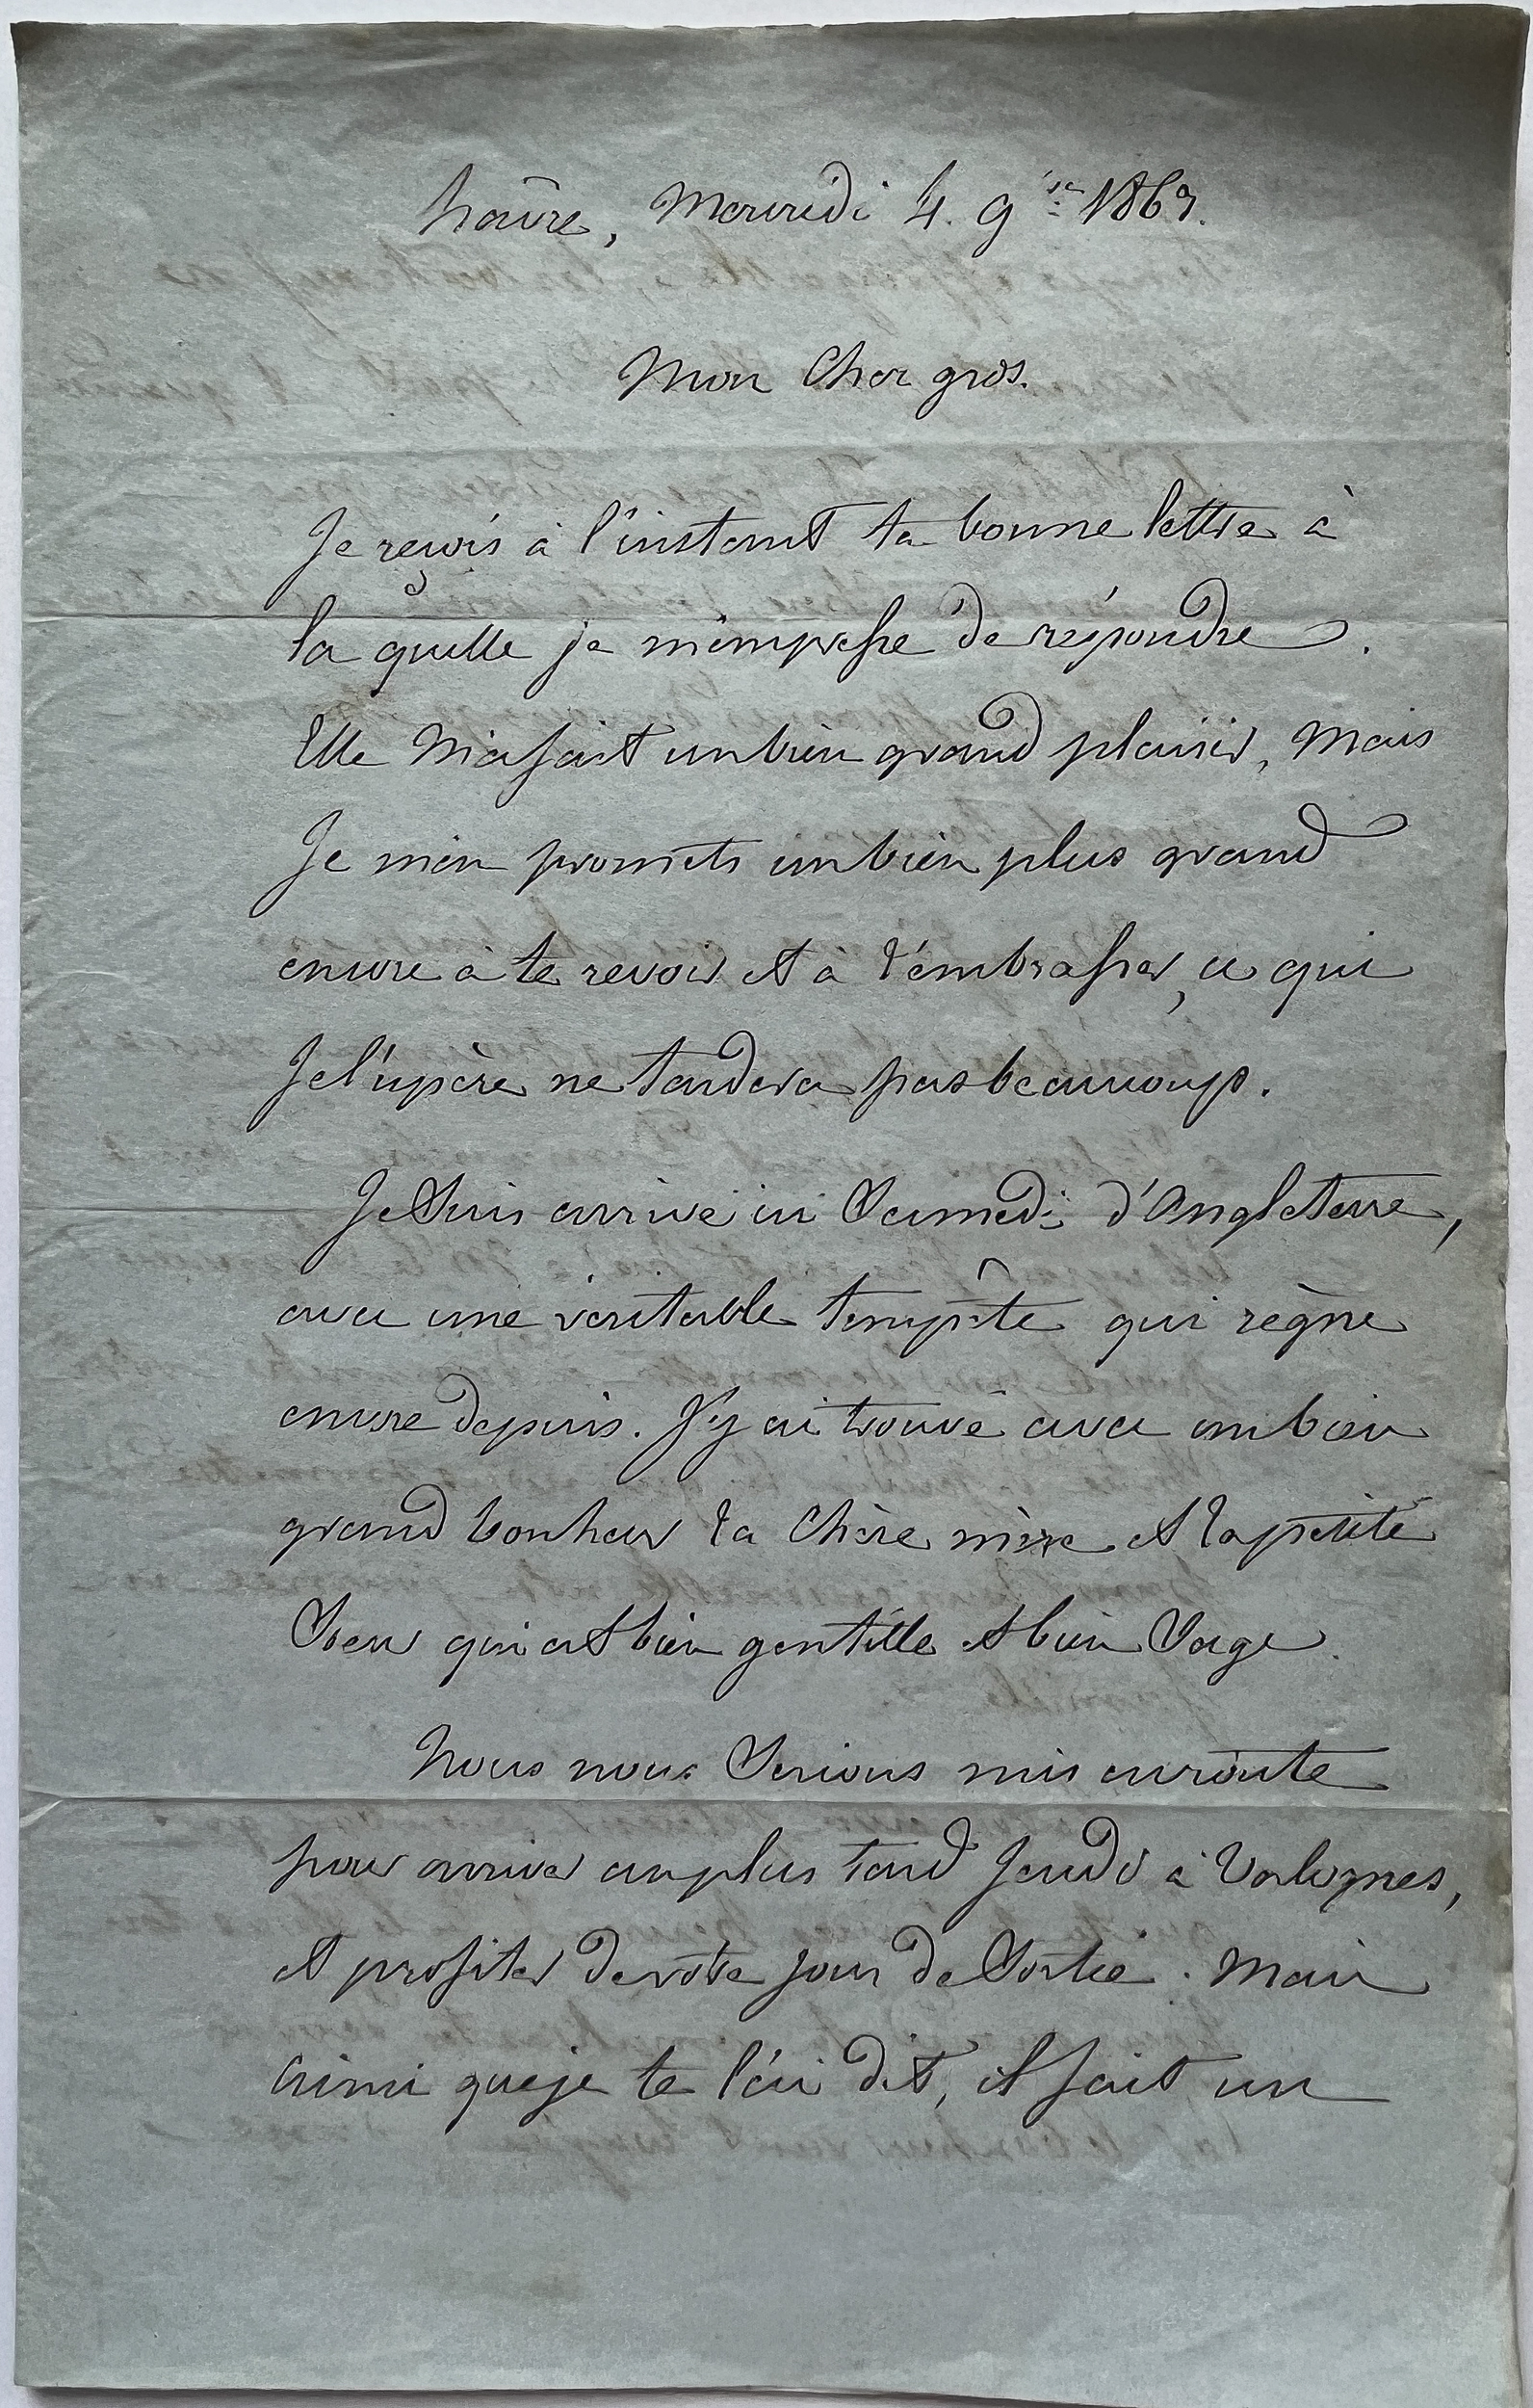 havre, Mercredi 4. 9bre 1863.
Mon Cher gros.
Je reçois à l'instant ta bonne lettre à
la quelle je m'empresse de répondre.
Elle m'a fait un bien grand plaisir, Mais
Je m'en promets un bien plus grand
encore à te revoir et à t'embrasser, ce qui
Je l'espère ne tardera pas beaucoup.
Je Suis arrivé ici Samedi d'Angleterre,
avec une véritable tempête qui règne
encore depuis. J'y ai trouvé avec un bien
grand bonheur ta Chère mère et ta petite
Sœur qui est bien gentille et bien Sage.
Nous nous Serions mis en route
pour arriver au plus tard Jeudi à Valognes,
et profiter de votre jour de Sortie. Mais
Ainsi que je te l'ai dit, il fait un